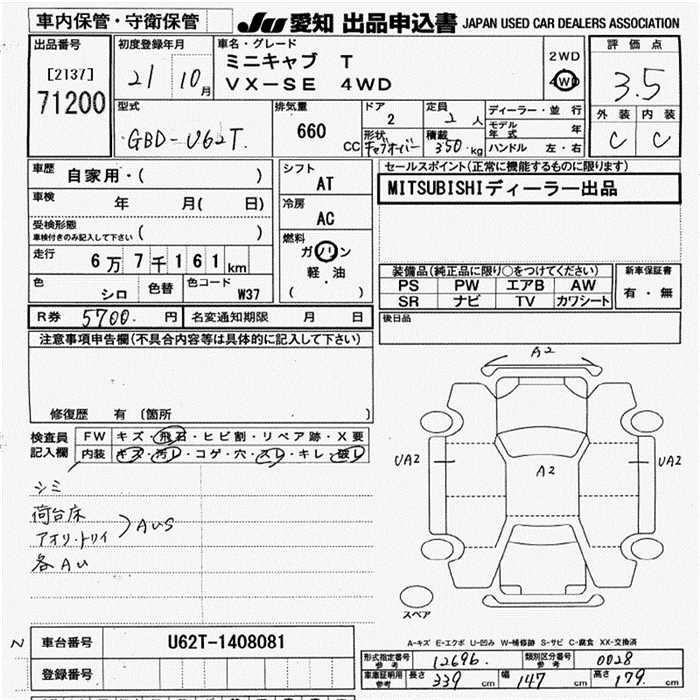 車内保管・守衛保管 JU 愛知 出品申込書 JAPAN USED CAR DEALERS ASSOCIATION
出品番号
[2137]
71200
初度登録年月
21 10月
車名・グレード
ミニキャブ T
VX-SE 4WD
2WD
4WD
評価点
3.5
外装 内装
C C
型式
GBD-U62T
排気量
660 CC
ドア
2
定員
2人
形状
キャブオーバー
積載
350kg
ディーラー・並行
モデル年式 年
ハンドル 左・右
車歴 自家用・( )
車検 年 月( 日)
受検形態
車検付きのみ記入して下さい ( )
走行 6万7千161km
色 シロ 色替 色コード W37
シフト
AT
冷房
AC
燃料
ガソリン
軽・油
( )
セールスポイント(正常に機能するものに限ります)
MITSUBISHIディーラー出品
装備品(純正品に限り○をつけてください)
PS PW エアB AW
SR ナビ TV カワシート
新車保証書
有・無
R券 5700. 円 名変通知期限 月 日
後日品
注意事項申告欄(不具合内容等は具体的に記入して下さい)
修復歴 有 [箇所 ]
検査員記入欄
FW キズ・飛石・ヒビ割・リペア跡・X要
内装 キズ・汚レ・コゲ・穴・スレ・キレ・破レ
シミ
荷台床
アオリ・トリイ
AUS
各AU
A2
UA2
A2
UA2
スペア
A-キズ E-エクボ U-凹み W-補修跡 S-サビ C-腐食 XX-交換済
N
車台番号 U62T-1408081
登録番号
形式指定番号
参考
12696.
類別区分番号
参考
0028
車庫証明用
参考
長さ 339 cm 幅 147 cm 高さ 179. cm